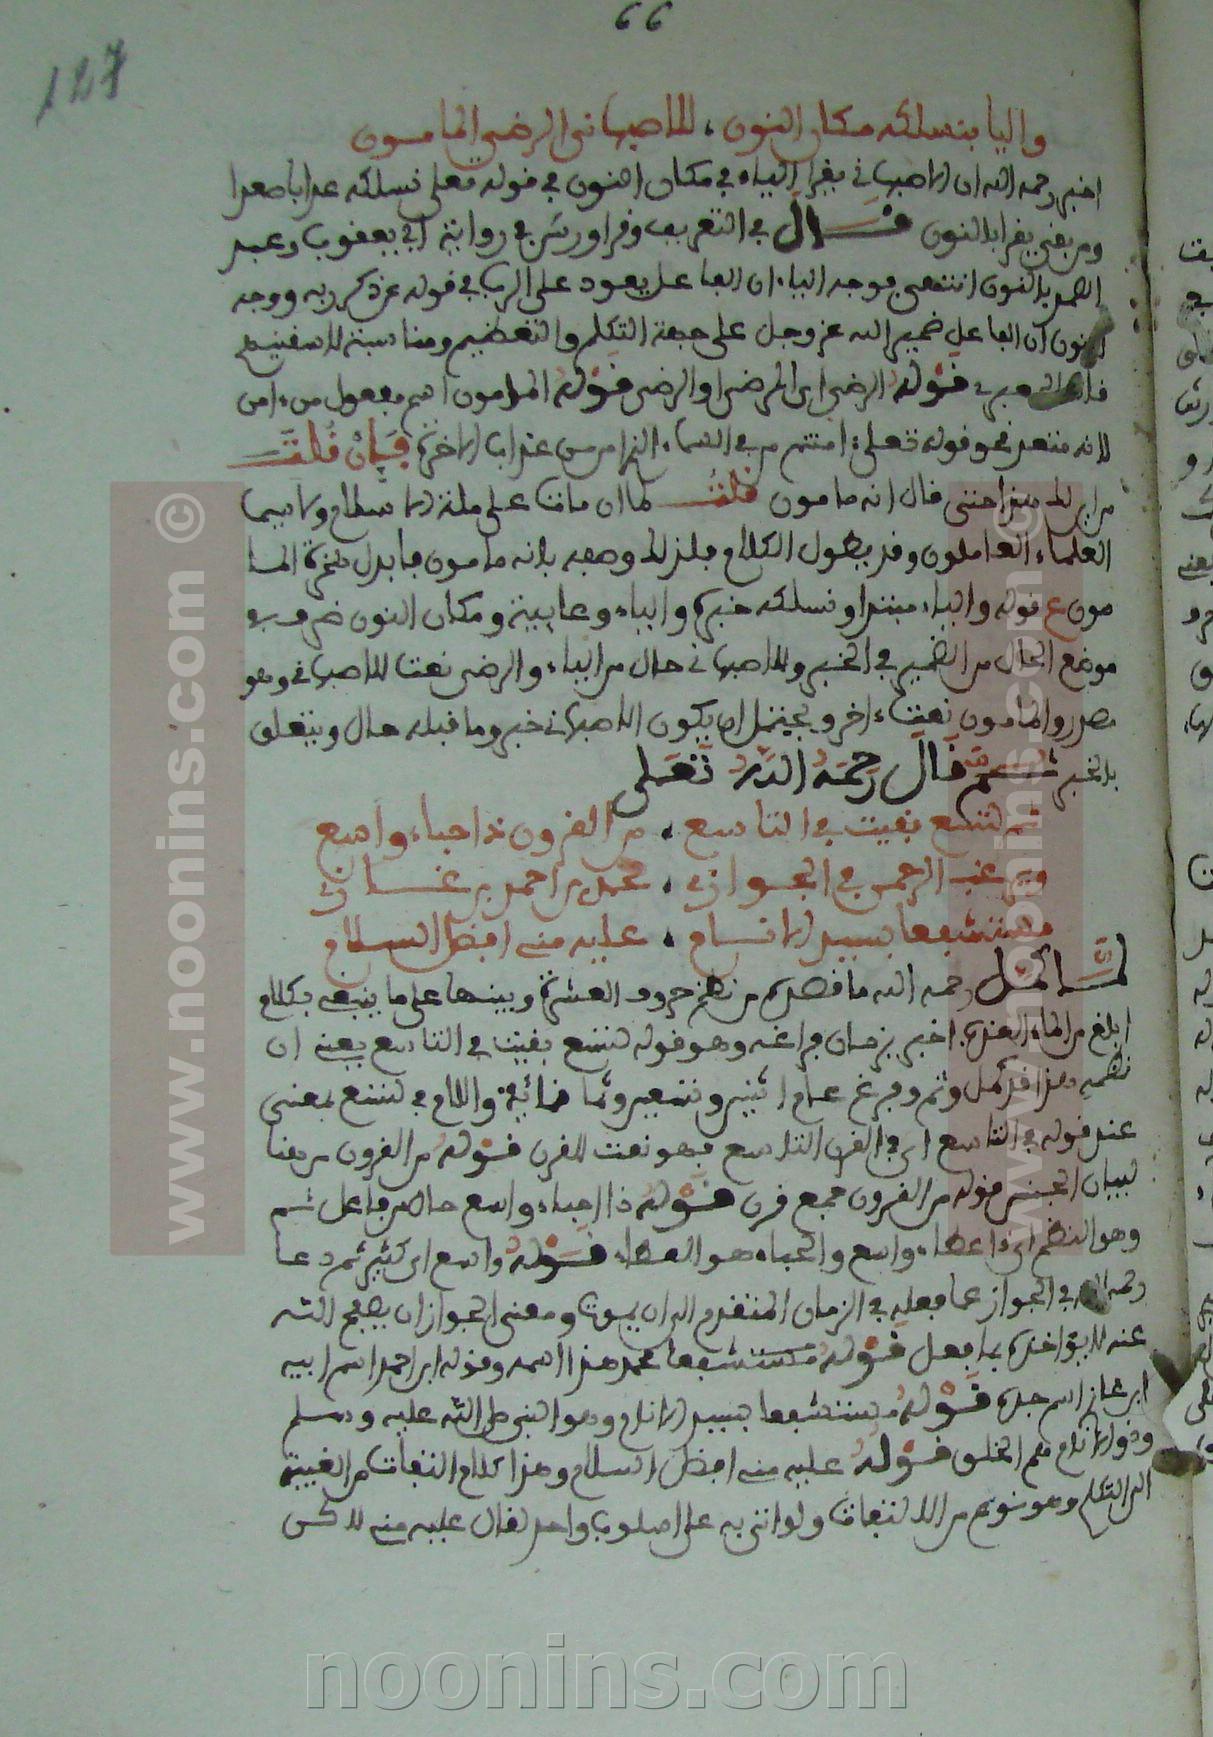 66
127
واليا بنسلكه مكان النون، للاصبهاني الرضي المامون
اخبر رحمه الله ان الاصبهاني يقرا بالياء في مكان النون في قوله تعلى نسلكه عذابا صعدا
ومن بقي يقرا بالنون قال في التعريف وقرا ورش في رواية ابي يعقوب وعبد
الصمد بالنون انتهى فوجه الياء ان الفاعل يعود على الرب في قوله عن ذكر ربه ووجه
النون ان الفاعل ضمير الله عز وجل على جهة التكلم والتعظيم ومناسبة لاسقينهم
قوله الرضي اي المرضي او الرضى قوله المامون اسم مفعول من امن
لانه متعد نحو قوله تعلى ءامنتم من في السماء اي امن من عذاب الاخرة فإن قلت
من اين له هذا حتى قال انه مامون قلت لما ان مات على ملة الاسلام ولا سيما
العلماء العاملون وقد يطول الكلام فلزله وصفه بانه مامون فابدل همزة الما
مون ع قوله والياء مبتدا ونسلكه خبره والباء وعائية ومكان النون ضرف
موضع الحال من الضمير في الخبر وللاصبهاني حال من الياء والرضى نعت للاصبهاني وهو
مصدر والمامون نعت ءاخر ويحتمل ان يكون للاصبهاني خبر وما قبله حال ويتعلق
بالخبر ثم قال رحمه الله تعلى
لتسع بقيت في التاسع، من القرون ذا حباء واسع
عبد الرحمن في الجواز، محمد بن احمد بن غاز
مستشفعا بسيد الانام، عليه مني افضل السلام
لما اكمل رحمه الله ما قصده من نظم حروف العشرة وبينها على ما ينبغي بكلام
ابلغ من الماء العذب اخبر بزمان فراغه وهو قوله لتسع بقيت في التاسع يعني ان
نظمه هذا قد كمل وتم وفرغ عام اثنين وتسعين وثمانمائة واللام في لتسع بمعنى
عند قوله في التاسع اي في القرن التاسع فهو نعت للقرن قوله من القرون من هنا
لبيان الجنس قوله من القرون جمع قرن قوله ذا حباء واسع حال من فاعل تم
وهو النظم اي ذا عطاء واسع والحباء هو العطاء قوله واسع اي كثير ثم دعا
رحمه الله في الجواز عما فعله في الزمان المتقدم الى ان يموت ومعنى الجواز ان يصفح الله
عنه لا يؤاخذه بما فعل قوله مستشفعا محمد هذا اسمه وقوله ابن احمد اسم ابيه
ابن غاز اسم جده قوله مستشفعا بسيد الانام وهو النبي صلى الله عليه وسلم
وقوله الانام هم الخلق قوله عليه مني افضل السلام وهذا كلام التفات من الغيبة
الى التكلم وهو نوع من الالتفات ولو اتى به على اسلوب واحد لقال عليه منه لاكن
www.noonins.com ©
www.noonins.com ©
noonins.com